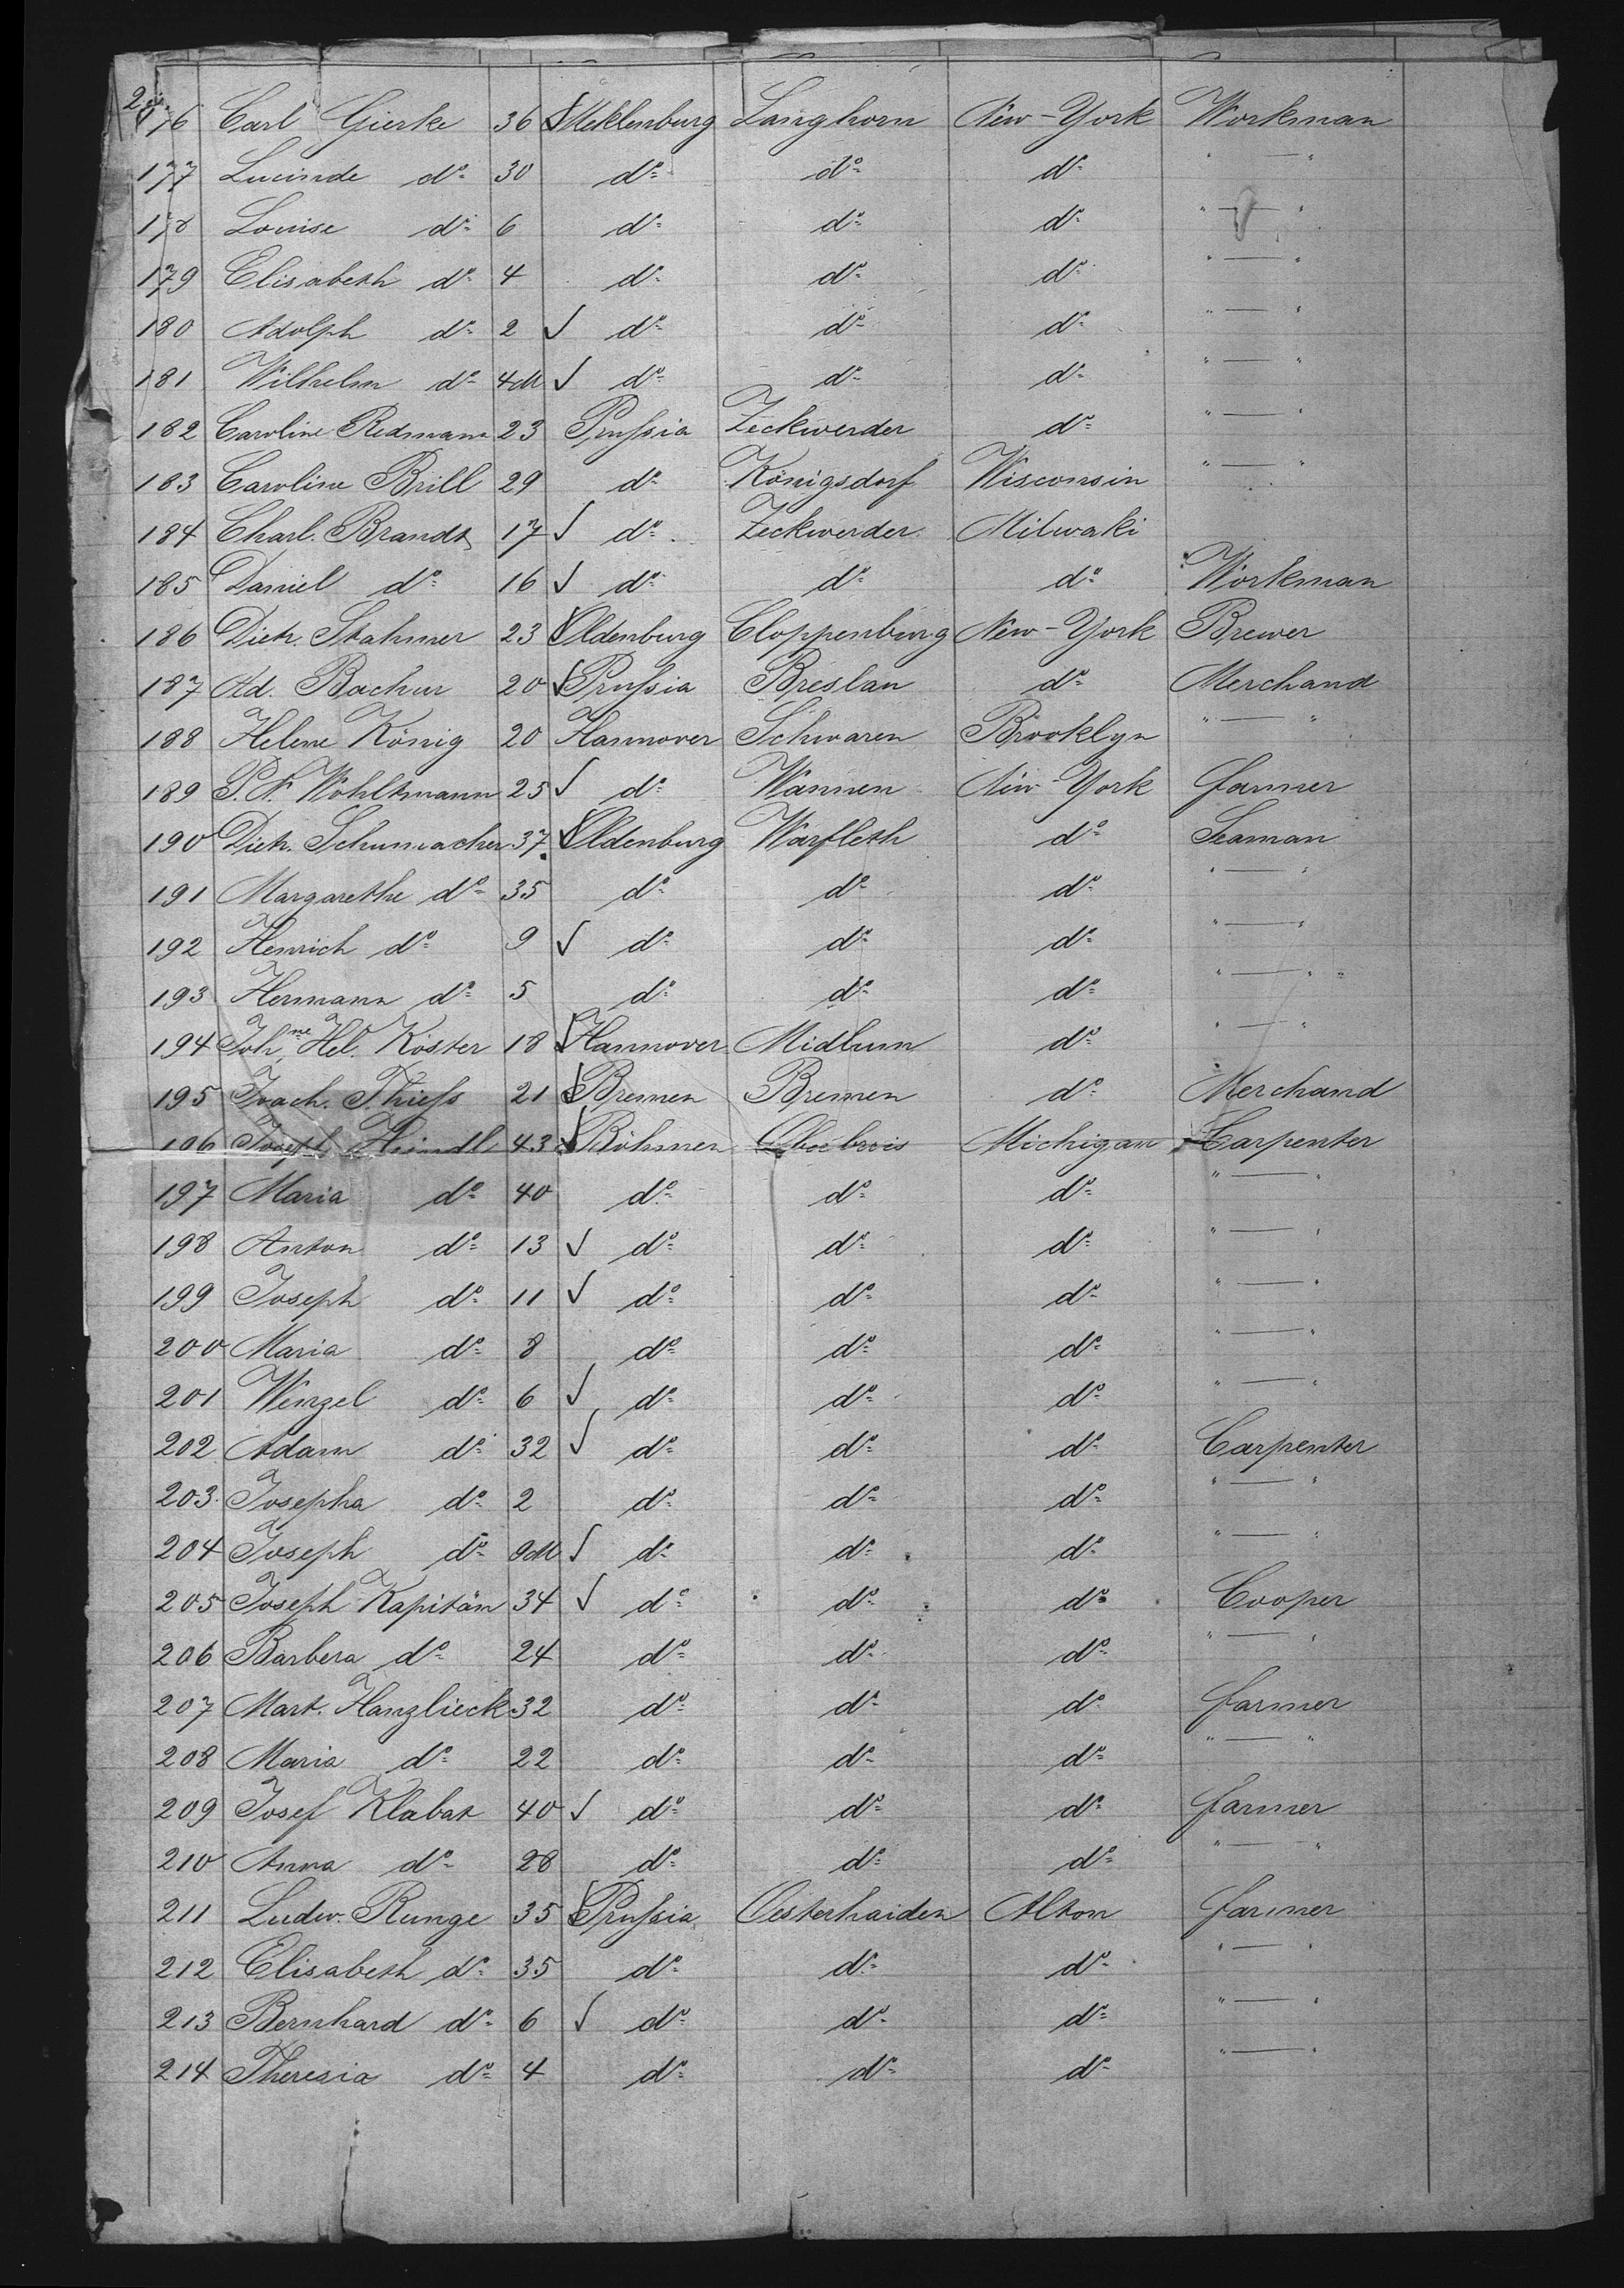 176 Carl Gierke 36 Meklenburg Langhorn New-York Workman
177 Lucinde do 30 do do do " — "
178 Louise do 6 do do do " — "
179 Elisabeth do 4 do do do " — "
180 Adolph do 2 √ do do do " — "
181 Wilhelm do 4M √ do do do " — "
182 Caroline Redmann 23 Prussia Zeckwerder do " — "
183 Caroline Brill 29 do Königsdorf Wisconsin " — "
184 Charl. Brandt 17 √ do Zeckwerder Milwaki
185 Daniel do 16 √ do do do Workman
186 Dietr. Stahmer 23 √ Oldenburg Cloppenburg New-York Brewer
187 Ad. Bachur 20 √ Prussia Breslau do Merchand
188 Helene König 20 Hannover Schwaren Brooklyn " — "
189 P. N. Wohltmann 25 √ do Wannen New-York farmer
190 Dietr. Schumacher 37 √ Oldenburg Warfleth do Seaman
191 Margarethe do 35 do do do " — "
192 Henrich do 9 √ do do do " — "
193 Hermann do 5 do do do " — "
194 Joh.ne Hel. Köster 18 √ Hannover Midlum do " — "
195 Joach. Thiess 21 √ Bremen Bremen do Merchand
196 Joseph 43 √ Böhmen Michigan Carpenter
197 Maria do 40 do do do " — "
198 Anton do 13 √ do do do " — "
199 Joseph do 11 √ do do do " — "
200 Maria do 8 do do do " — "
201 Wenzel do 6 √ do do do " — "
202 Adam do 32 √ do do do Carpenter
203 Josepha do 2 do do do " — "
204 Joseph do 9M √ do do do " — "
205 Joseph Kapitän 34 √ do do do Cooper
206 Barbera do 24 do do do " — "
207 Mart. Hanzlieck 32 do do do farmer
208 Maria do 22 do do do " — "
209 Josef Klabat 40 √ do do do farmer
210 Anna do 28 do do do " — "
211 Ludw. Runge 35 √ Prussia Oesterhaiden Alton farmer
212 Elisabeth do 35 do do do " — "
213 Bernhard do 6 √ do do do " — "
214 Theresia do 4 do do do " — "